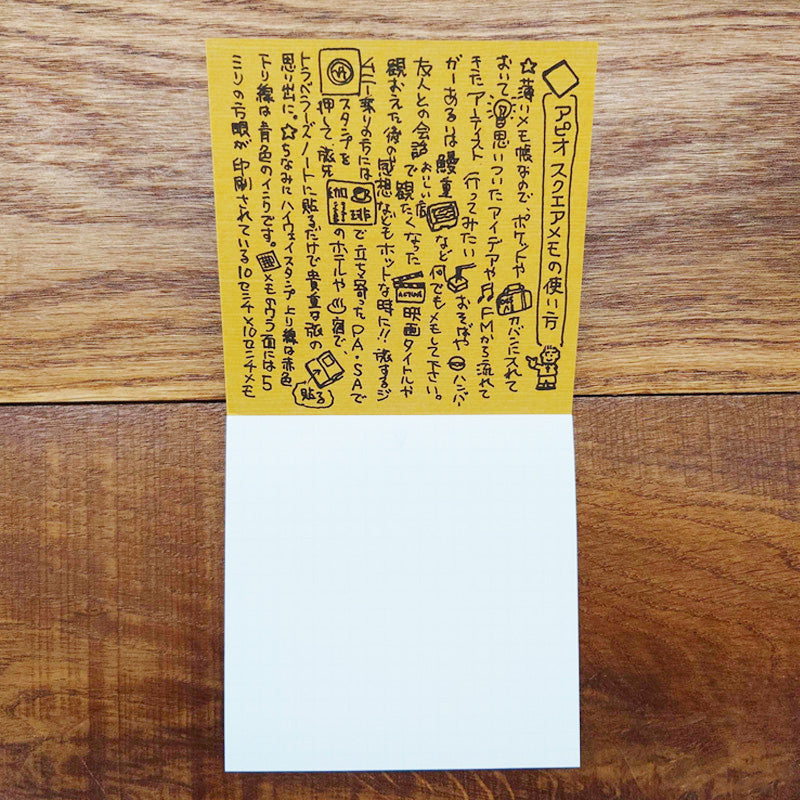 アピオ スクエアメモの使い方
☆薄いメモ帳なので、ポケットや カバンに入れて
おいて 思いついたアイデアや♫FMから流れて
きたアーティスト 行ってみたい おそばや ハンバー
ガーあるいは鰻重 など何でもメモして下さい。
友人との会話 おいしい店 で観たくなった 映画タイトルや
観おえた後の感想などもホットな時に!! 旅するジ
ムニー乗りの方には 珈琲 で立ち寄ったPA・SAで
スタンプを
押して、旅先 のホテルや♨宿で、
トラベラーズノートに貼るだけで貴重な旅の
貼る
思い出に。☆ちなみにハイウェイスタンプ上り線は赤色
下り線は青色のインクです。 メモのウラ面には5
ミリの方眼が印刷されている10センチ×10センチメモ